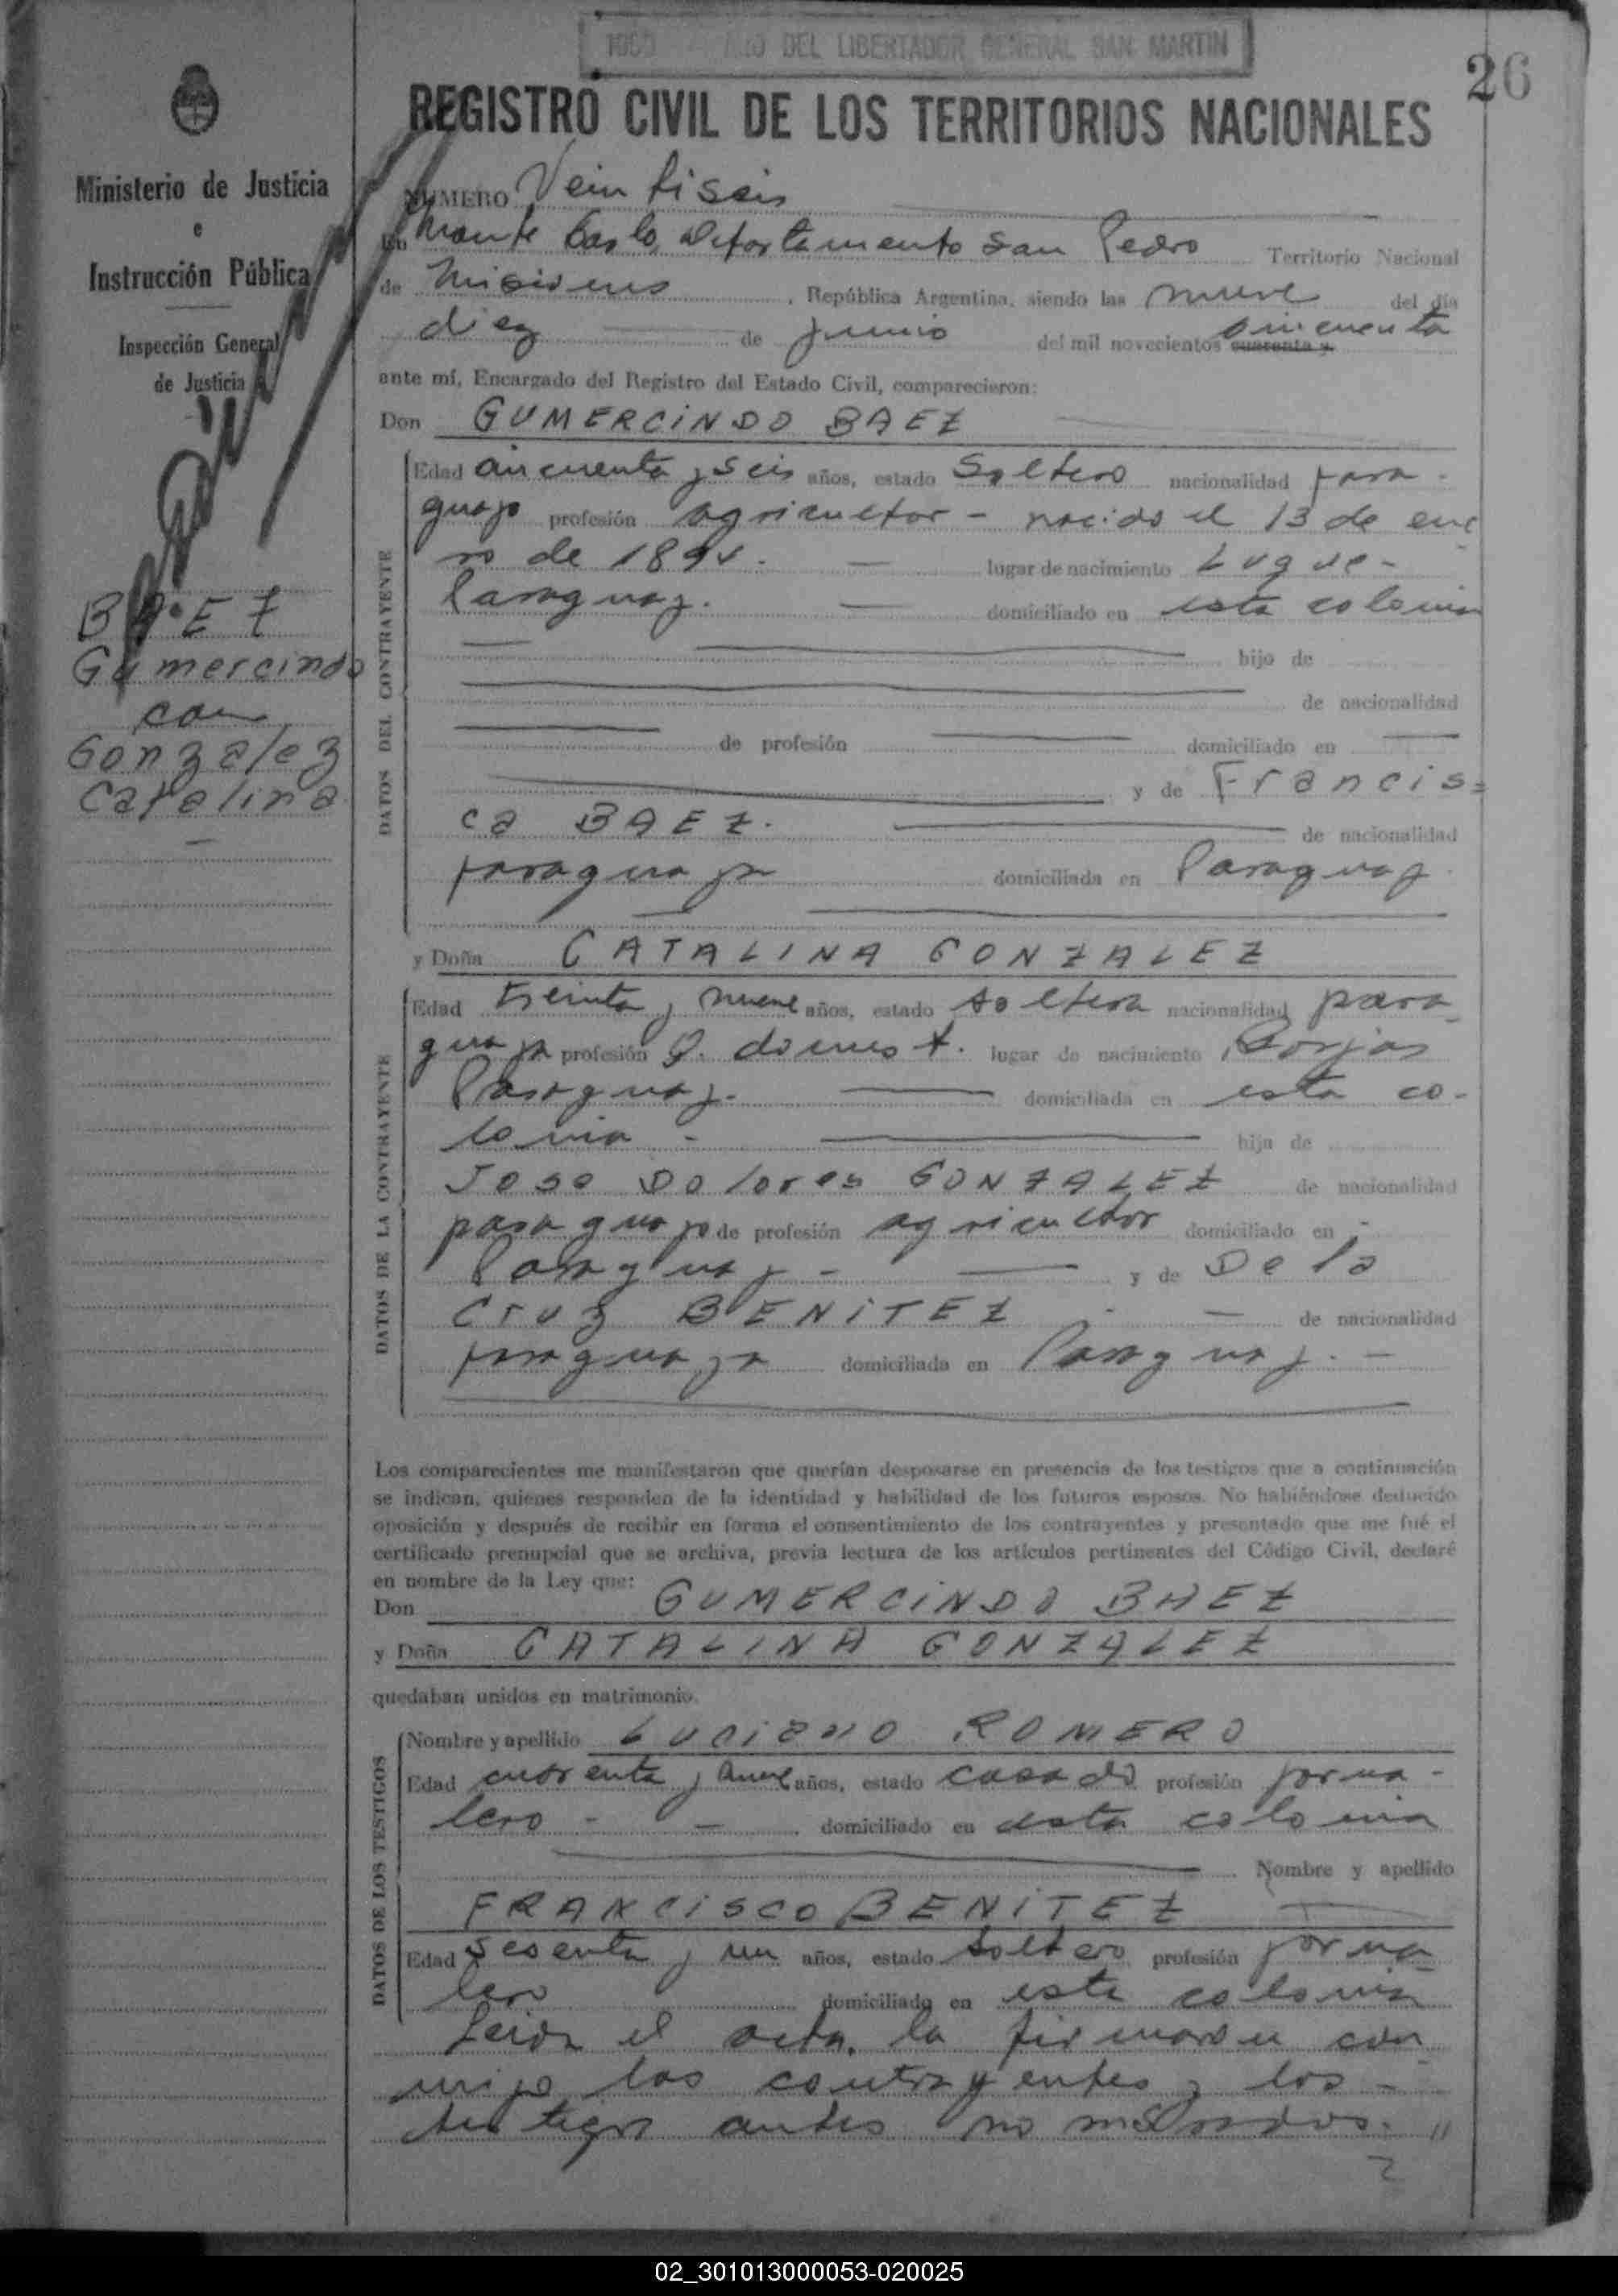 1950 AÑO DEL LIBERTADOR GENERAL SAN MARTIN
26
REGISTRO CIVIL DE LOS TERRITORIOS NACIONALES
Ministerio de Justicia
e
Instrucción Pública
Inspección General
de Justicia
BAEZ
Gumercindo
con
Gonzalez
Catalina
NUMERO Veintiseis
En Monte Carlo, Departamento San Pedro Territorio Nacional
de Misiones, República Argentina, siendo las nueve del día
diez de junio del mil novecientos cuarenta y cincuenta
ante mí, Encargado del Registro del Estado Civil, comparecieron:
Don GUMERCINDO BAEZ
DATOS DEL CONTRAYENTE
Edad cincuenta y seis años, estado Soltero nacionalidad para-
guayo profesión agricultor - nacido el 13 de ene
ro de 1894. - lugar de nacimiento Luque-
Paraguay. - domiciliado en esta colonia
hijo de
de nacionalidad
de profesión domiciliado en
y de Francis=
ca BAEZ. de nacionalidad
paraguaya domiciliada en Paraguay
y Doña CATALINA GONZALEZ
DATOS DE LA CONTRAYENTE
Edad treinta y nueve años, estado soltera nacionalidad para
guaya profesión Q. domest. lugar de nacimiento Borjas
Paraguay. - domiciliada en esta co-
lonia - hija de
Jose Dolores GONZALEZ de nacionalidad
paraguayo de profesión agricultor domiciliado en -
Paraguay - y de De la
Cruz BENITEZ - de nacionalidad
paraguaya domiciliada en Paraguay. -
Los comparecientes me manifestaron que querían desposarse en presencia de los testigos que a continuación
se indican, quienes responden de la identidad y habilidad de los futuros esposos. No habiéndose deducido
oposición y después de recibir en forma el consentimiento de los contrayentes y presentado que me fué el
certificado prenupcial que se archiva, previa lectura de los artículos pertinentes del Código Civil, declaré
en nombre de la Ley que:
Don GUMERCINDO BAEZ
y Doña CATALINA GONZALEZ
quedaban unidos en matrimonio.
DATOS DE LOS TESTIGOS
Nombre y apellido Luciano ROMERO
Edad cuarenta y nueve años, estado casado profesión jorna-
lero - - domiciliado en esta colonia
Nombre y apellido
FRANCISCO BENITEZ
Edad Sesenta y un años, estado soltero profesión jorna
lero domiciliado en esta colonia
Leida el acta, la firmaron con
migo los contrayentes y los -
testigos antes nombrados. "
02_301013000053-020025